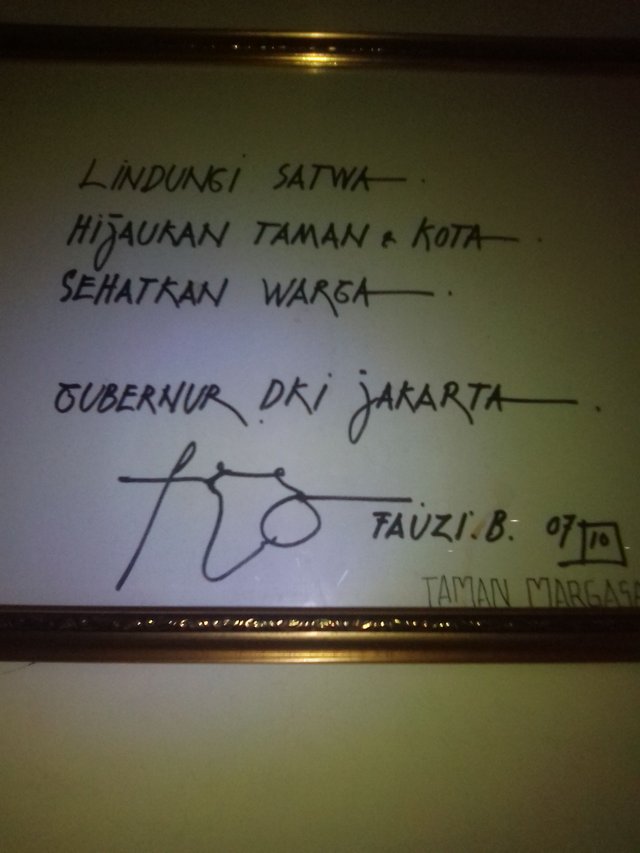 LINDUNGI SATWA.
HIJAUKAN TAMAN & KOTA.
SEHATKAN WARGA.
GUBERNUR DKI JAKARTA.
FAUZI.B. 07 10
TAMAN MARGASA